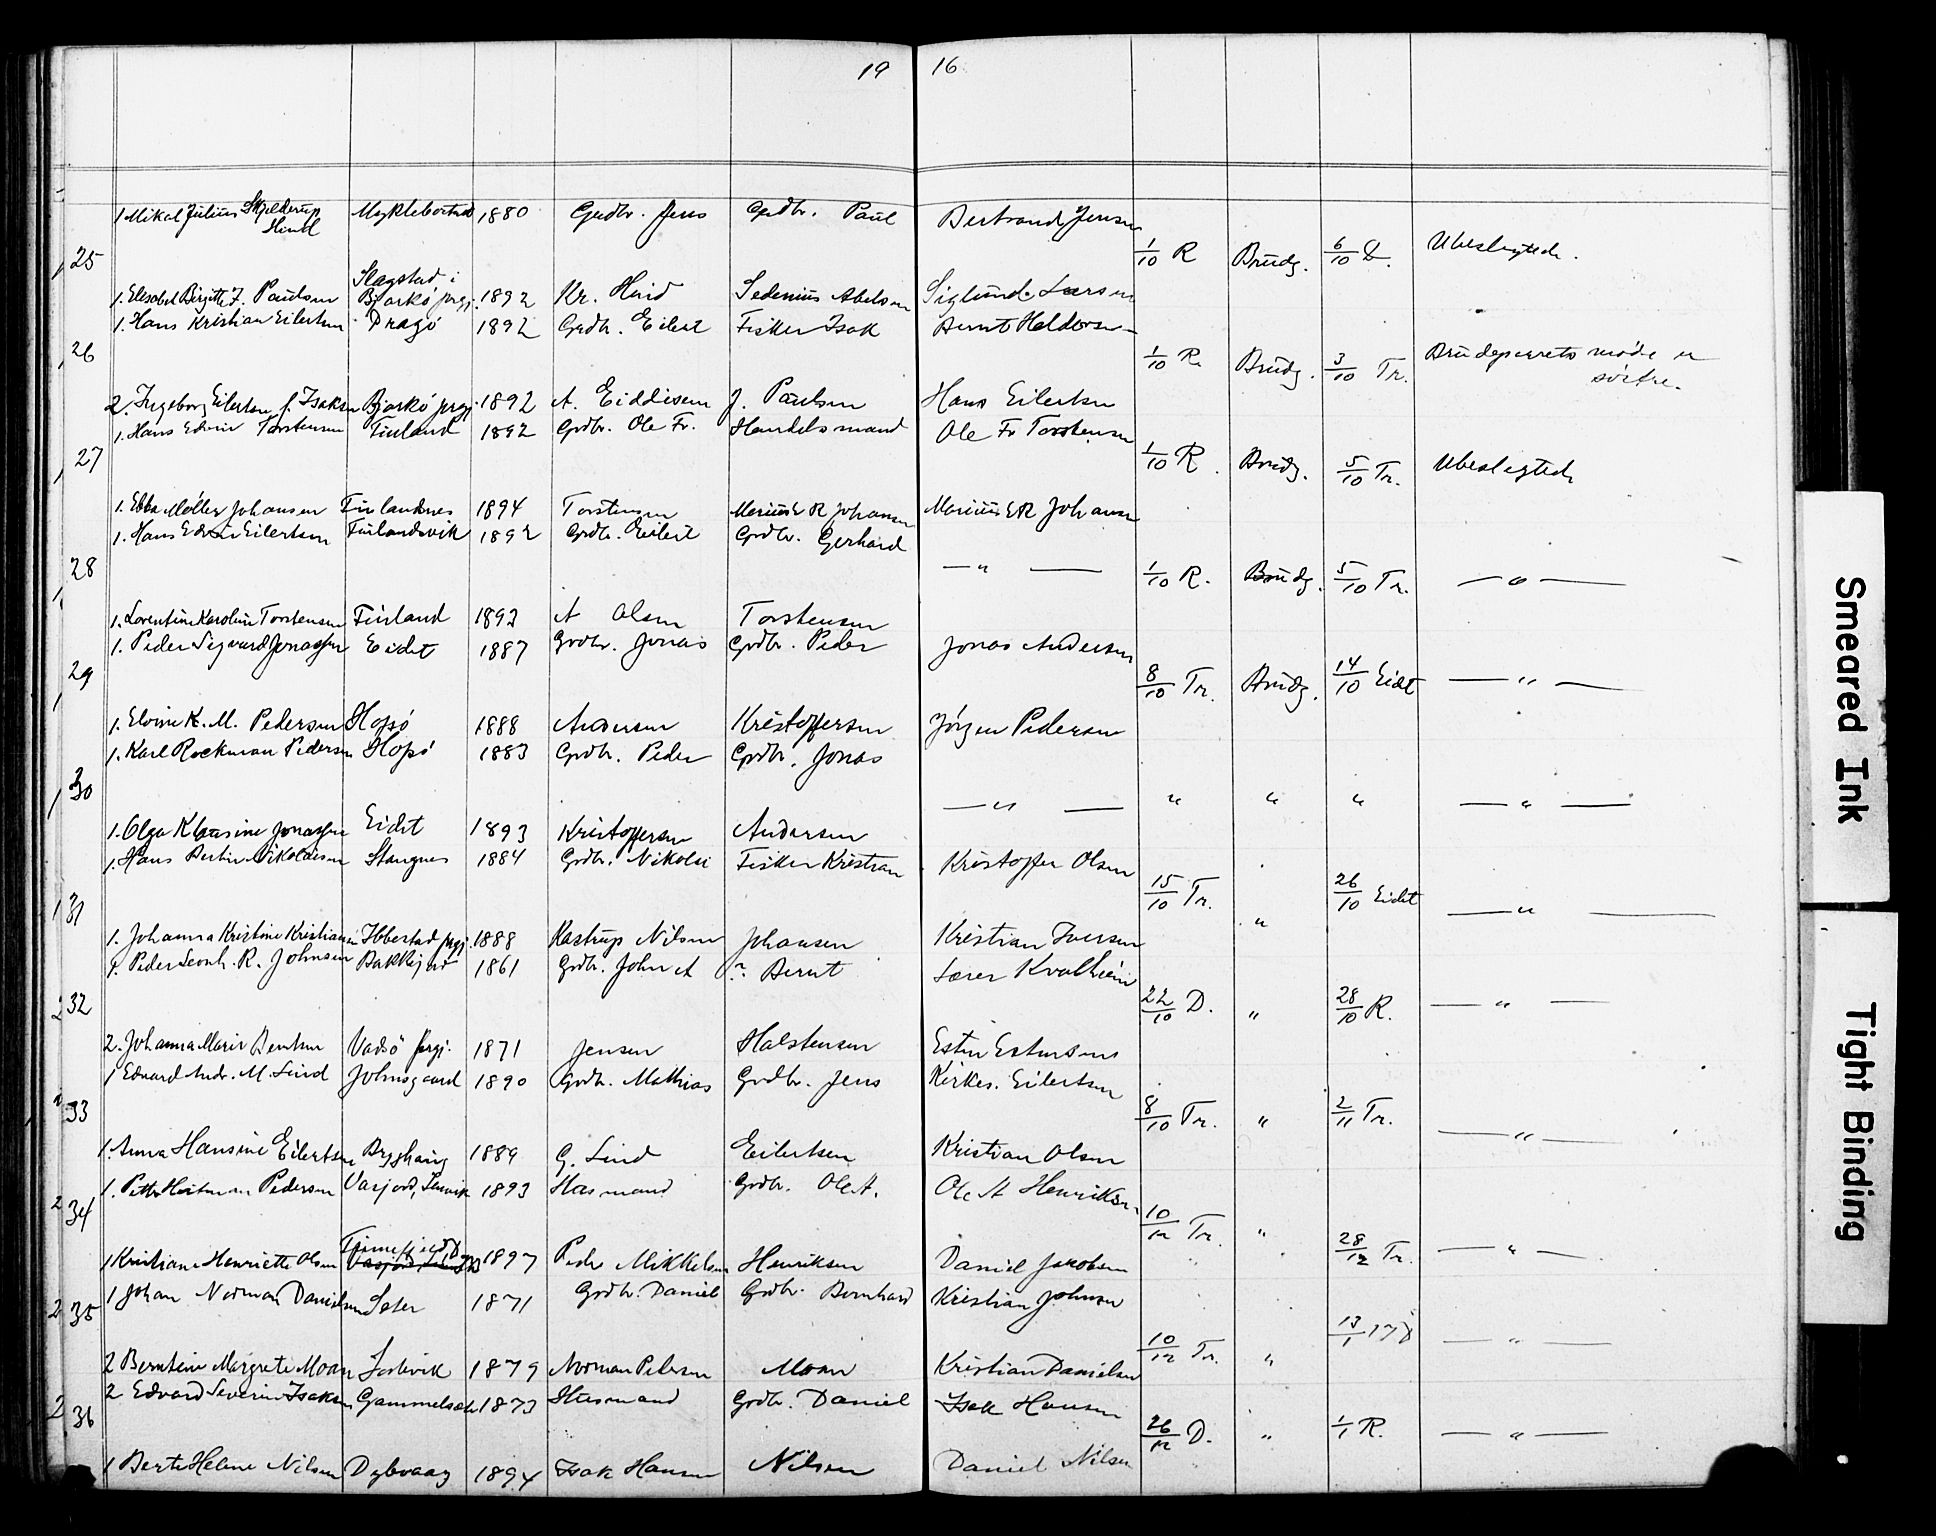 19 16
1 Mikal Julius Skjelderup Myklebostad 1880 Grdbr. Jens Grdbr. Paul Bertrand Jensen
Hind
25 1/10 R Brudg. 6/10 D. Ubeslegtede.
Slagstad i
1. Elisabet Birgitte F. Paulsen Bjarkø prgj. 1892 Kr. Hind Sedenius Abelsen Siglund Larsen
1. Hans Kristian Eilertsen Dragø 1892 Grdbr. Eilert Fisker Isak Bernt Heldersen
26 1/10 R. Brudg. 3/10 Tr. Brudeparrets mødre er
søstre.
2. Ingeborg Eilertsen f. Isaksen Bjarkø prgj. 1892 A. Eiddissen J. Paulsen Hans Eilertsen
1. Hans Edvin Torstensen Finland 1892 Grdbr. Ole Fr. Handelsmand Ole Fr Torstensen
27 1/10 R. Brudg. 5/10 Tr. Ubeslegtede
1. Ebba Møller Johansen Finlandnes 1894 Torstensen Marius E R Johansen Marius E R Johansen
1. Hans Edvin Eilertsen Finlandsvik 1892 Grdbr. Eilert Grdbr. Gerhard
28 — " — 1/10 R. Brudg. 5/10 Tr. — " —
1. Lorentine Karoline Torstensen Finland 1892 A Olsen Torstensen
1. Peder Sigvard Jonassen Eidet 1887 Grdbr. Jonas Grdbr. Peder Jonas Andersen
29 8/10 Tr. Brudg. 14/10 Eidet — " —
1. Elvine K. M. Pedersen Hopsø 1888 Andersen Kristoffersen Jörgen Pedersen
1. Karl Rockman Pedersen Hopsø 1883 Grdbr. Peder Grdbr. Jonas
30 — " — " " " — " —
1. Olga Klausine Jonassen Eidet 1893 Kristoffersen Andersen
1. Hans Bertin Nikolaisen Stangnes 1884 Grdbr. Nikolai Fisker Kristian Kristoffer Olsen
31 15/10 Tr. " 26/10 Eidet — " —
1. Johanna Kristine Kristiansen Ibbestad prgj. 1888 Kastrup Nilsen Johansen Kristian Iversen
1. Peder Leonh. R. Johnsen Bakkejord 1861 Grdbr. John A ? Bernt Lærer Kvalheim
32 22/10 D. " 28/10 R. — " —
2. Johanna Marie Berntsen Vadsø prgj. 1871 Jensen Halstensen Esten Estensens
1 Edvard Andr. M. Lind Johnsgaard 1890 Grdbr. Mathias Grdbr. Jens Kirkes. Eilertsen
33 8/10 Tr. " 2/11 Tr. — " —
1. Anna Hansine Eilertsen Brygghaug 1889 G. Lind Eilertsen Kristian Olsen
1. Petter Hartman Pedersen Vasjord, Lenvik 1893 Husmand Grdbr. Ole A. Ole A Henriksen
34 10/12 Tr. " 28/12 Tr. — " —
1 Kristiane Henriette Olsen 1897 Peder Mikkelsen Henriksen Daniel Jakobsen
1 Johan Norman Danielsen Seter 1871 Grdbr. Daniel Grdbr. Bernhard Kristian Johnsen
35 10/12 Tr. " 13/1 17 — " —
2 Berntine Margrete Moan 1879 Norman Petersen Moan Kristian Danielsen
2 Edvard Severin Isaksen Gammelsæter 1873 Husmand Grdbr. Daniel Isak Hansen
36 26/12 D. " 1/1 R. — " —
1 Berte Helene Nilsen Dybvaag 1894 Isak Hansen Nilsen Daniel Nilsen
Smeared Ink
Tight Binding